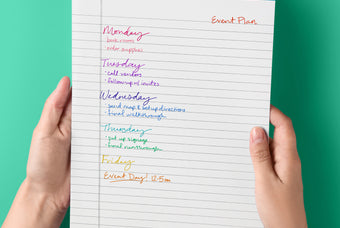 Event Plan
Monday
· book room
· order supplies
Tuesday
· call vendors
· follow up w/ invites
Wednesday
· send map & setup directions
· final walkthrough
Thursday
· put up signage
· final run through
Friday
Event Day! 12-5pm